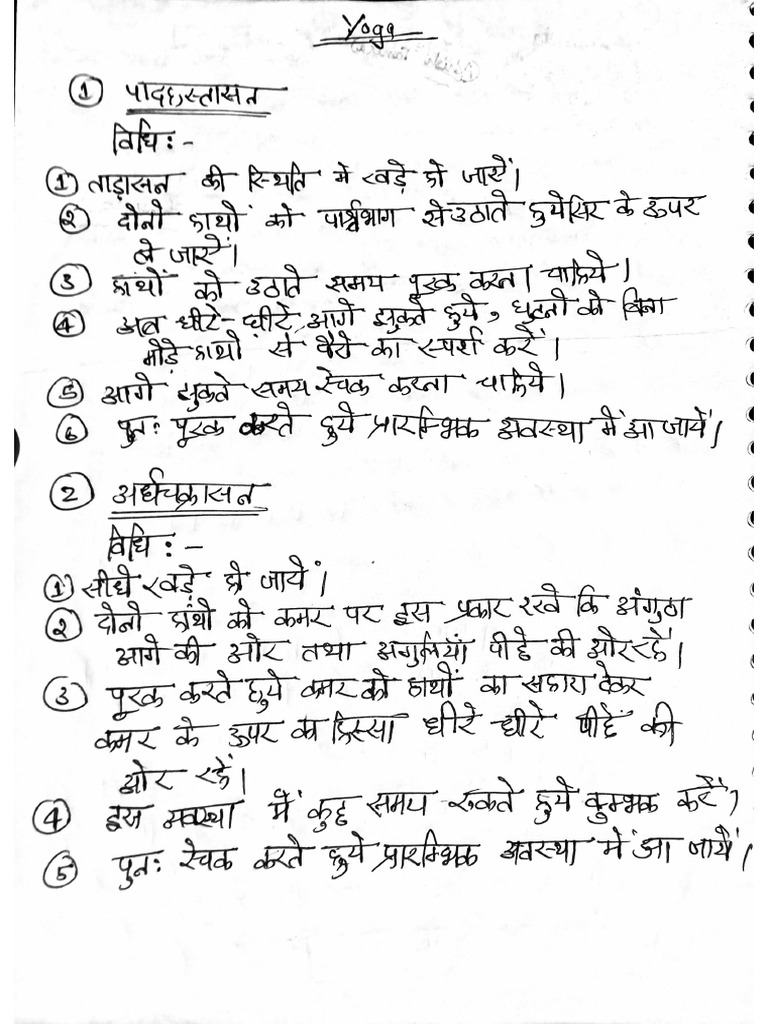 Yoga
① पादहस्तासन
विधि :-
① ताड़ासन की स्थिति में खड़े हो जाएँ।
② दोनो हाथों को पार्श्वभाग से उठाते हुये सिर के ऊपर
ले जाएँ।
③ हाथों को उठाते समय पूरक करना चाहिये।
④ अब धीरे-धीरे, आगे झुकते हुये, घुटनो को बिना
मोड़े हाथों से पैरो का स्पर्श करें।
⑤ आगे झुकते समय रेचक करना चाहिये।
⑥ पुनः पूरक करते हुये प्रारम्भिक अवस्था में आ जायें।
② अर्धचक्रासन
विधि :-
① सीधे खड़े हो जायें।
② दोनो हाथो को कमर पर इस प्रकार रखे कि अंगुठा
आगे की ओर तथा अंगुलियाँ पीछे की ओर रहें।
③ पूरक करते हुये कमर को हाथों का सहारा देकर
कमर के ऊपर का हिस्सा धीरे-धीरे पीछें की
ओर रहें।
④ इस अवस्था में कुछ समय रुकते हुये कुम्भक करें,
⑤ पुनः रेचक करते हुये प्रारम्भिक अवस्था में आ जायें।